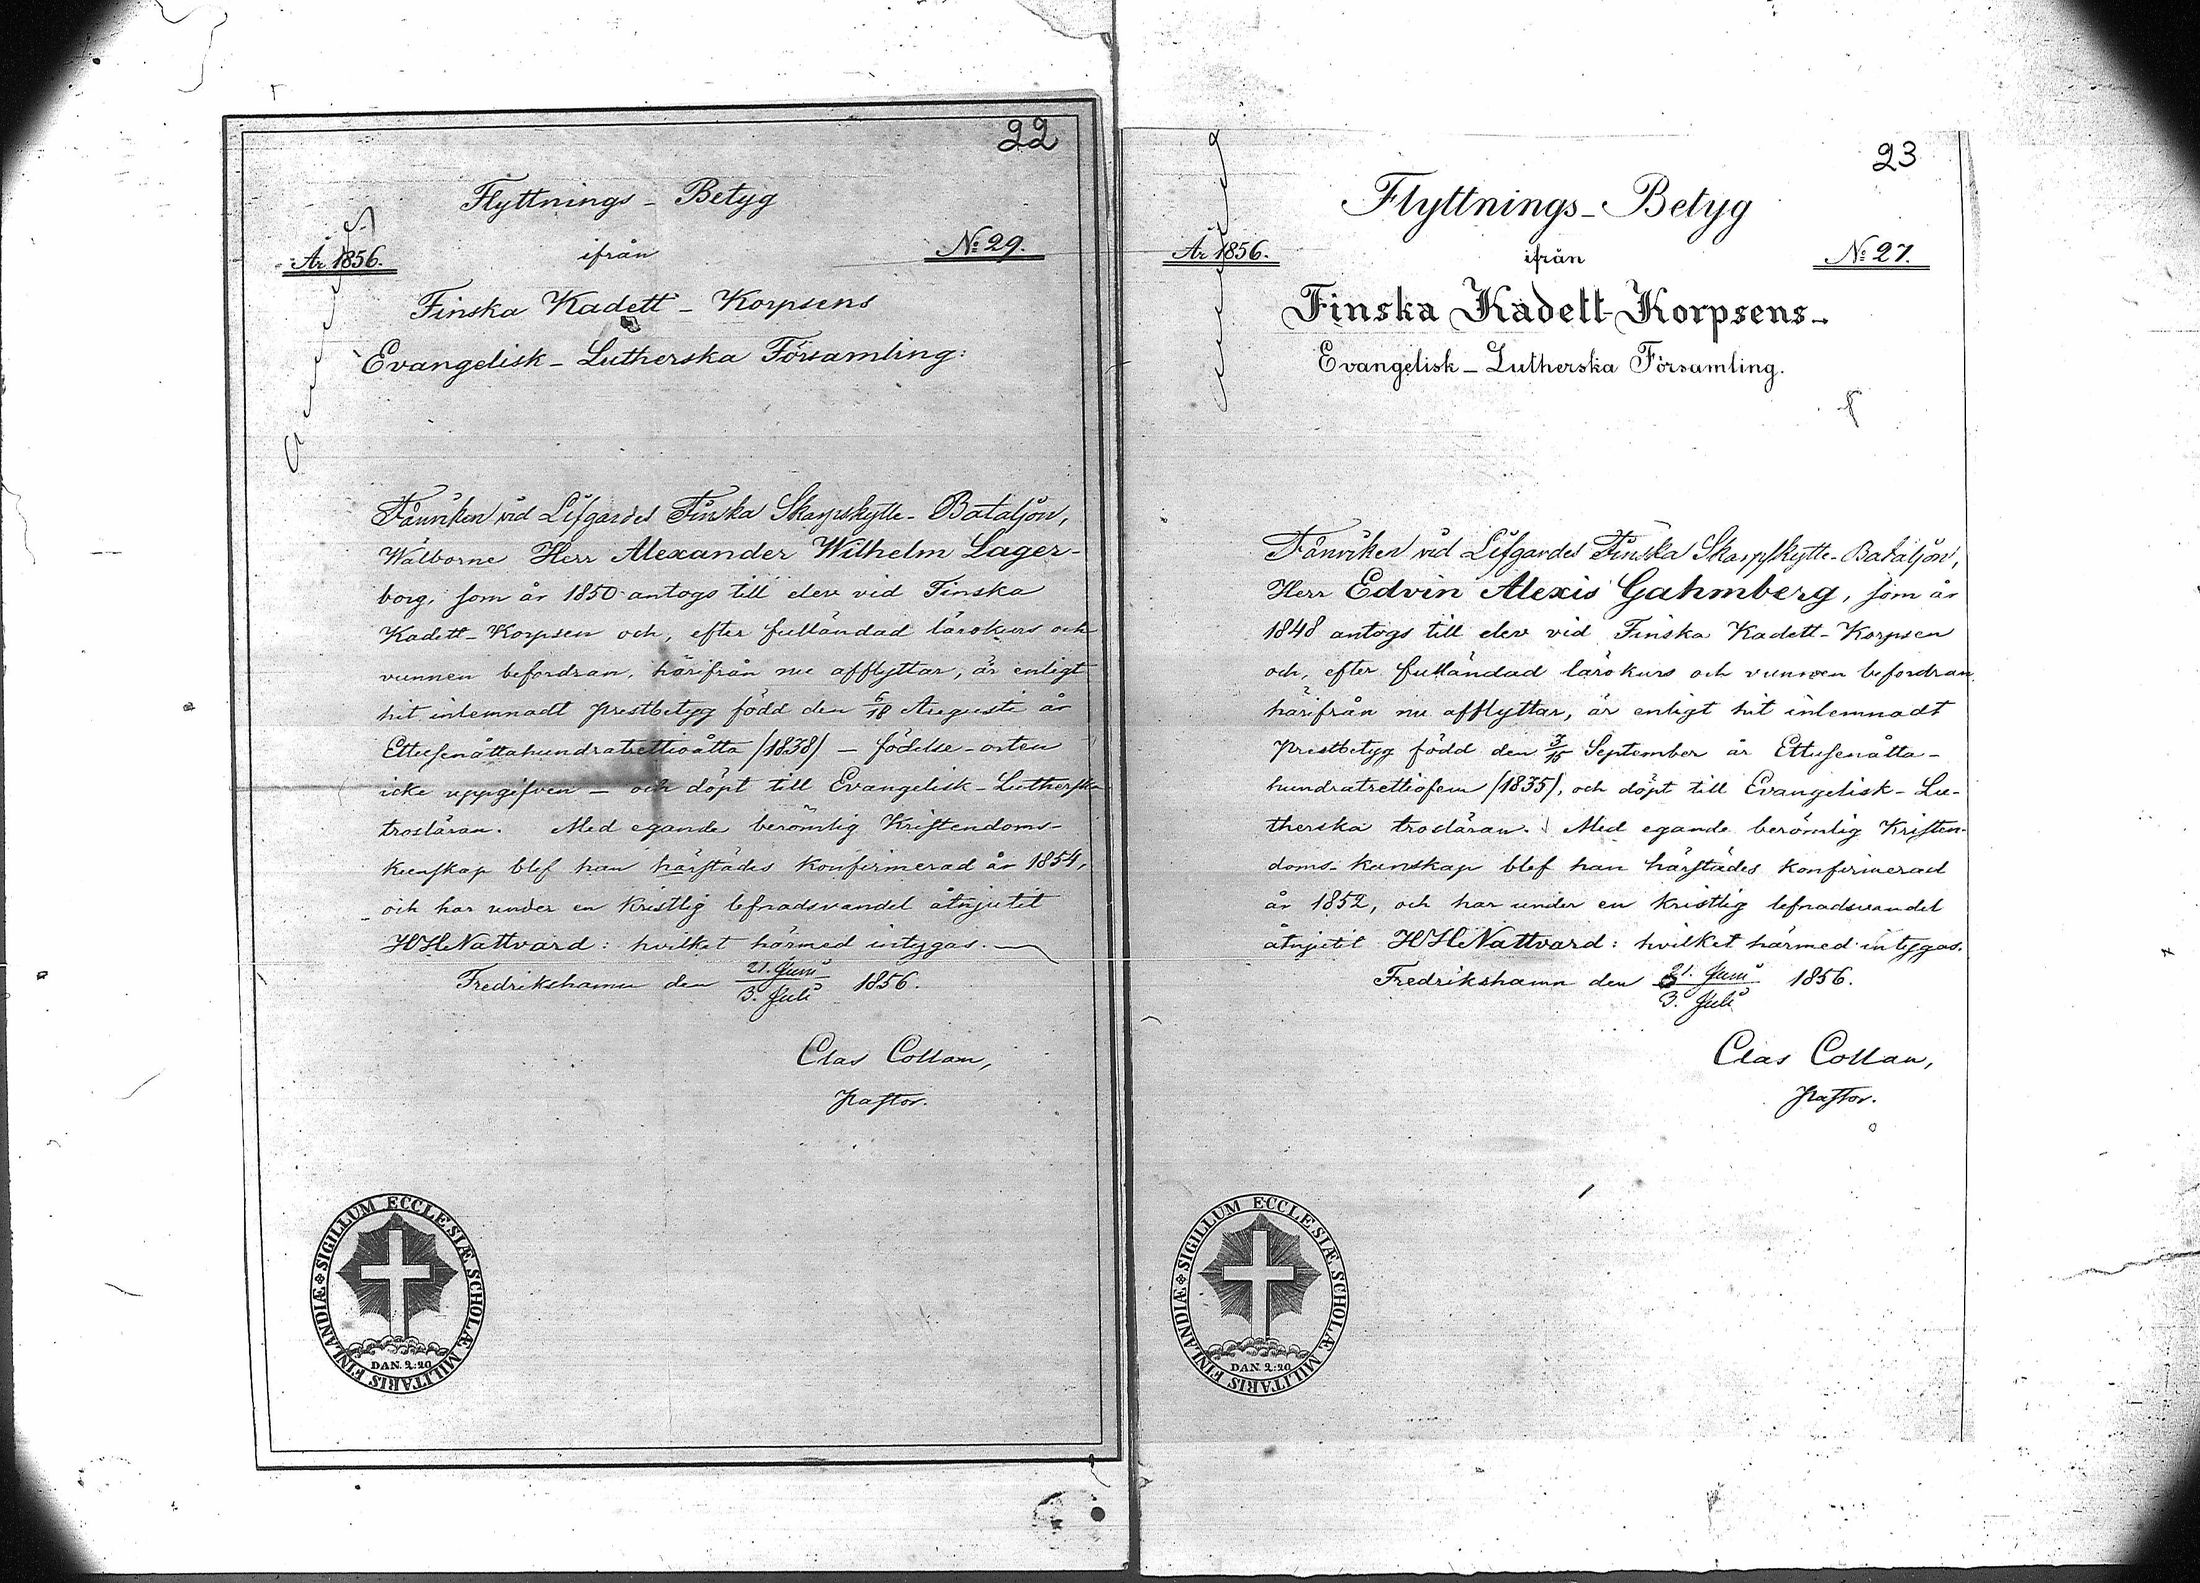 22
Flyttnings - Betyg
År 1856.
ifrån
No 29.
Finska Kadett - Korpsens
Evangelisk - Lutherska Församling:
Fänriken vid Lifgardes Finska Skarpskytte - Bataljon,
Wälborne Herr Alexander Wilhelm Lager-
borg, som år 1850 antogs till elev vid Finska
Kadett - Korpsen och, efter fulländad lärokurs och
vunnen befordran, härifrån nu afflyttar, är enligt
hit inlemnadt prestbetyg född den 6/18 Augusti år
Ettusenåttahundratrettioåtta /1838/ - födelse-orten
icke uppgifven - och döpt till Evangelisk - Lutherska
trosläran. Med egande berömlig Kristendoms-
kunskap blef han härstädes konfirmerad år 1854,
och har under en kristlig lefnadsvandel åtnjutit
HHNattvard: hvilket härmed intygas.
Fredrikshamn den 21. Juni / 3. Juli 1856.
Clas Collan,
Pastor.
SIGILLUM ECCLESIÆ SCHOLÆ MILITARIS FINLANDIÆ
DAN. 2:20
23
Flyttnings - Betyg
År 1856.
ifrån
No 27.
Finska Kadett-Korpsens
Evangelisk - Lutherska Församling.
Fänriken vid Lifgardes Finska Skarpskytte - Bataljon,
Herr Edvin Alexis Gahmberg, som år
1848 antogs till elev vid Finska Kadett - Korpsen
och, efter fulländad lärokurs och vunnen befordran,
härifrån nu afflyttar, är enligt hit inlemnadt
prestbetyg född den 3/15 September år Ettusenåtta-
hundratrettiofem /1835/, och döpt till Evangelisk - Lu-
therska trosläran. Med egande berömlig Kristen-
doms-kunskap blef han härstädes konfirmerad
år 1852, och har under en kristlig lefnadsvandel
åtnjutit HHNattvard: hvilket härmed intygas.
Fredrikshamn den 21. Juni / 3. Juli 1856.
Clas Collan,
Pastor.
SIGILLUM ECCLESIÆ SCHOLÆ MILITARIS FINLANDIÆ
DAN. 2:20